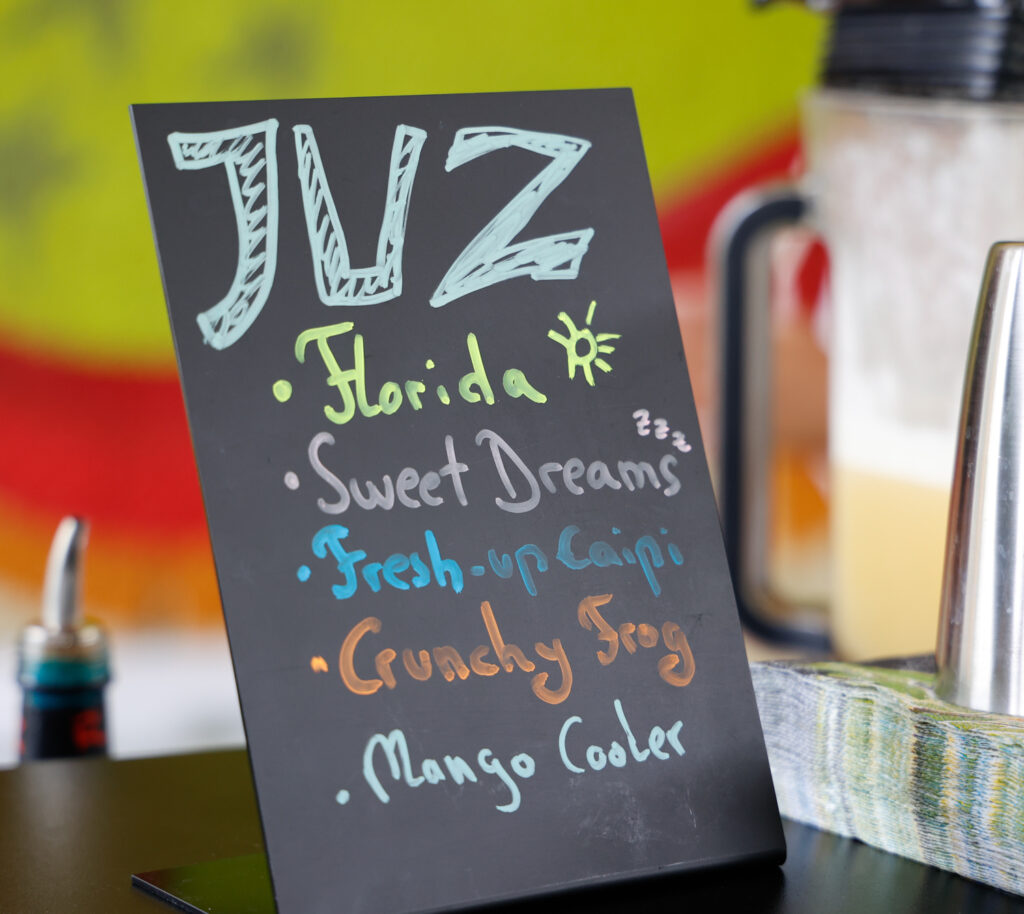 JUZ
• Florida
• Sweet Dreams zzz
• Fresh-up Caipi
• Crunchy Frog
• Mango Cooler